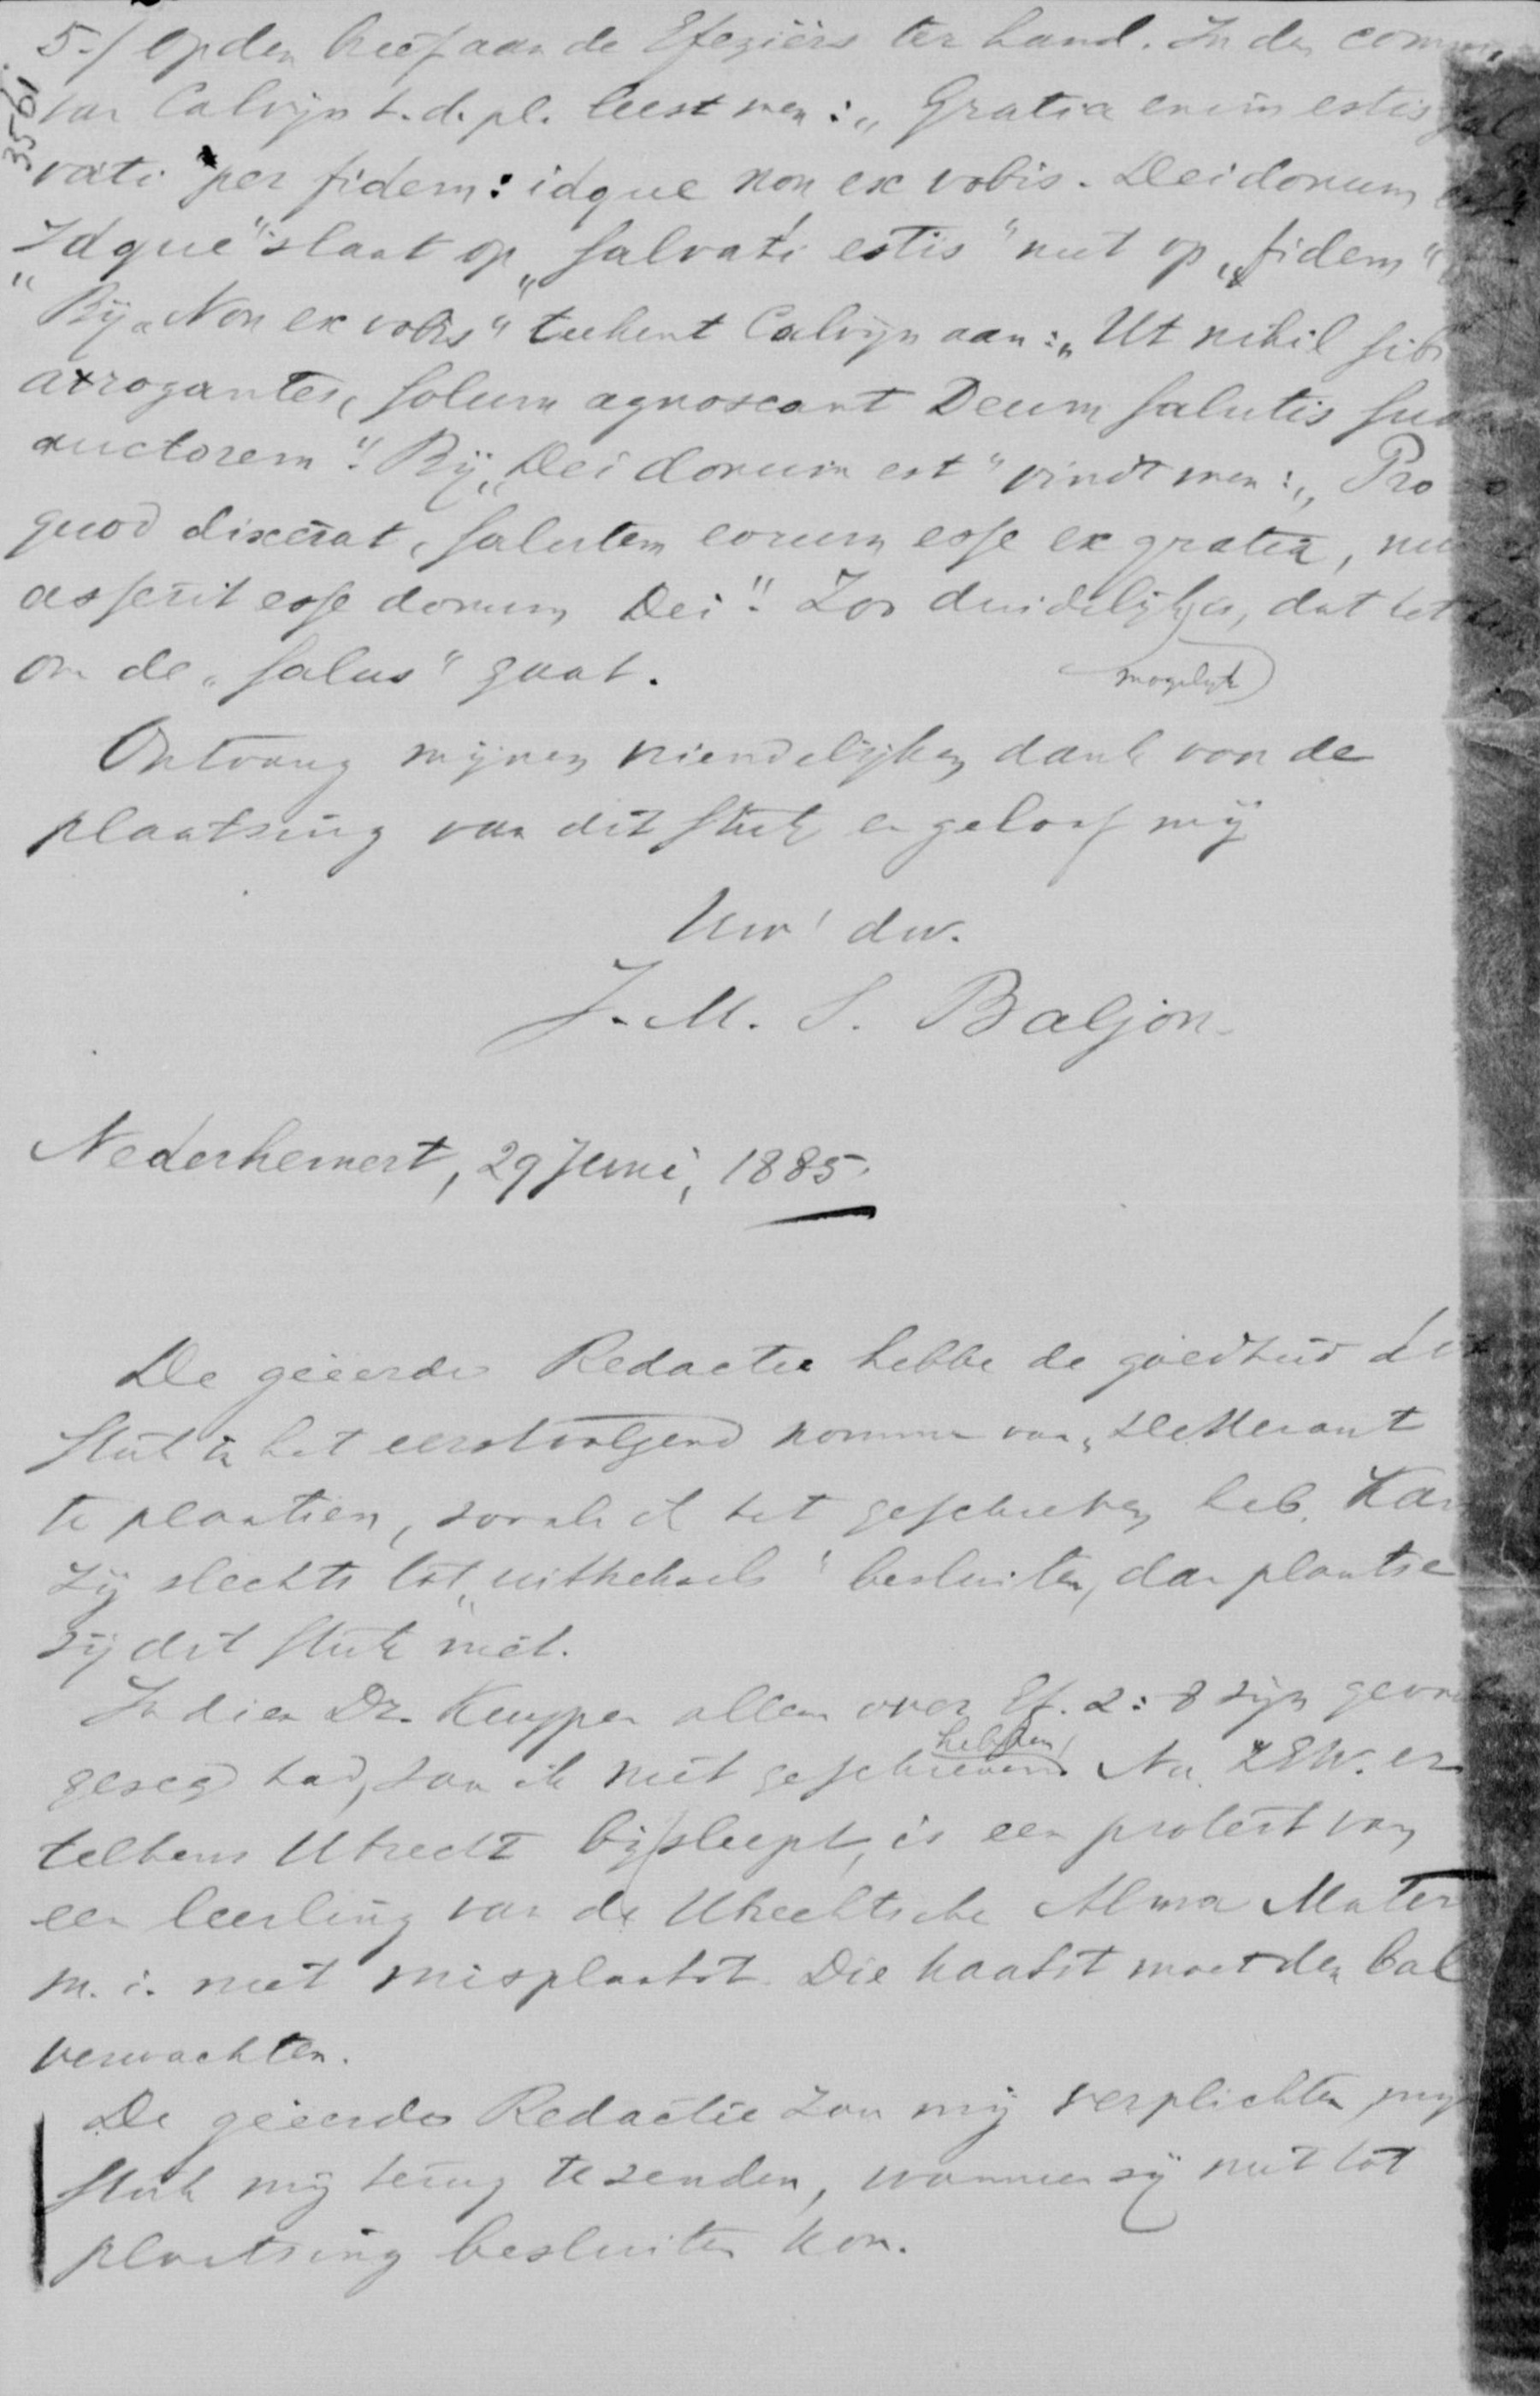 5./ op den brief aan de Efeziërs ter hand. In den comm.
3561
van Calvijn t. d. pl. leest men: „Gratia enim estis sal
vati per fidem: idque non ex vobis. Dei donum est"
„Idque" slaat op „salvati estis" niet op „fidem"
Bij „Non ex vobis" teekent Calvijn aan: „Ut nihil sibi
arrogantes, solum agnoscant Deum salutis suae
auctorem". Bij „Dei donum est" vindt men: „Pro
quod dixerat, salutem eorum esse ex gratia, nu
asserit esse donum Dei". Zoo duidelijk is, dat het
mogelijk
om de „salus" gaat.
Ontvang mijnen vriendelijken dank voor de
plaatsing van dit stuk en geloof mij
Uw dw.
J. M. S. Baljon
Nederhemert, 29 Juni, 1885.
De geëerde Redactie hebbe de goedheid dit
stuk in het eerstvolgend nommer van „De Heraut
te plaatsen, zooals ik het geschreven heb. Kan
zij slechts tot „uitknipsels" besluiten, dan plaatse
zij dit stuk niet.
Indien Dr. Kuyper alleen over Ef. 2:8 zijn gevoelen
gezegd had, zou ik niet geschreven hebben. Nu ZEW. er
telkens Utrecht bijsleept, is een protest van
een leerling van de Utrechtsche Alma Mater
m. i. niet misplaatst. Die kaatst moet den bal
verwachten.
De geëerde Redactie zou mij verplichten, mijn
stuk mij terug te zenden, wanneer zij niet tot
plaatsing besluiten kon.